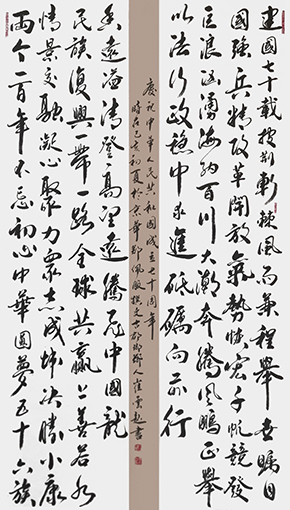 建國七十載披荊斬棘風雨兼程舉世矚目
國強兵精改革開放氣勢恢宏千帆競發
巨浪洶湧海納百川大潮奔騰風鵬正舉
以法行政穩中求進砥礪向前行
兩个一百年不忘初心中華圓夢五十六族
情景交融凝心聚力眾志成城決勝小康
民族復興一帶一路全球共贏上善若水
香遠溢清登高望遠騰飛中國龍
慶祝中華人民共和國成立七十周年
時在己亥初夏於京華